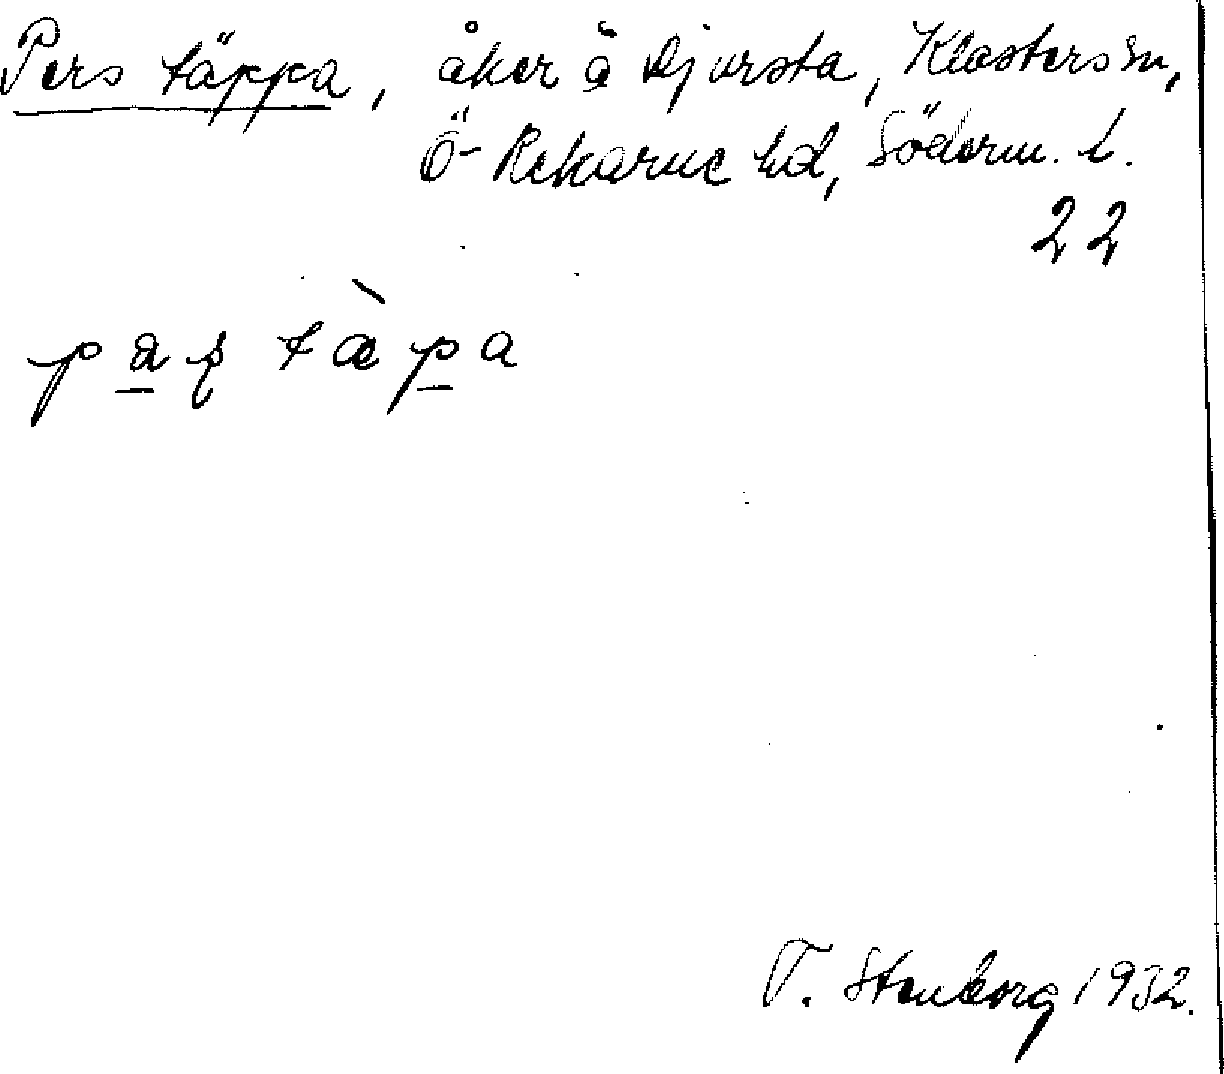 Pers täppa, åker å Djursta, Klosters sn,
Ö-Rekarne hd, Söderm. l.
22
pa̲ʂ tæ̀p̲a
T. Stenborg 1932.